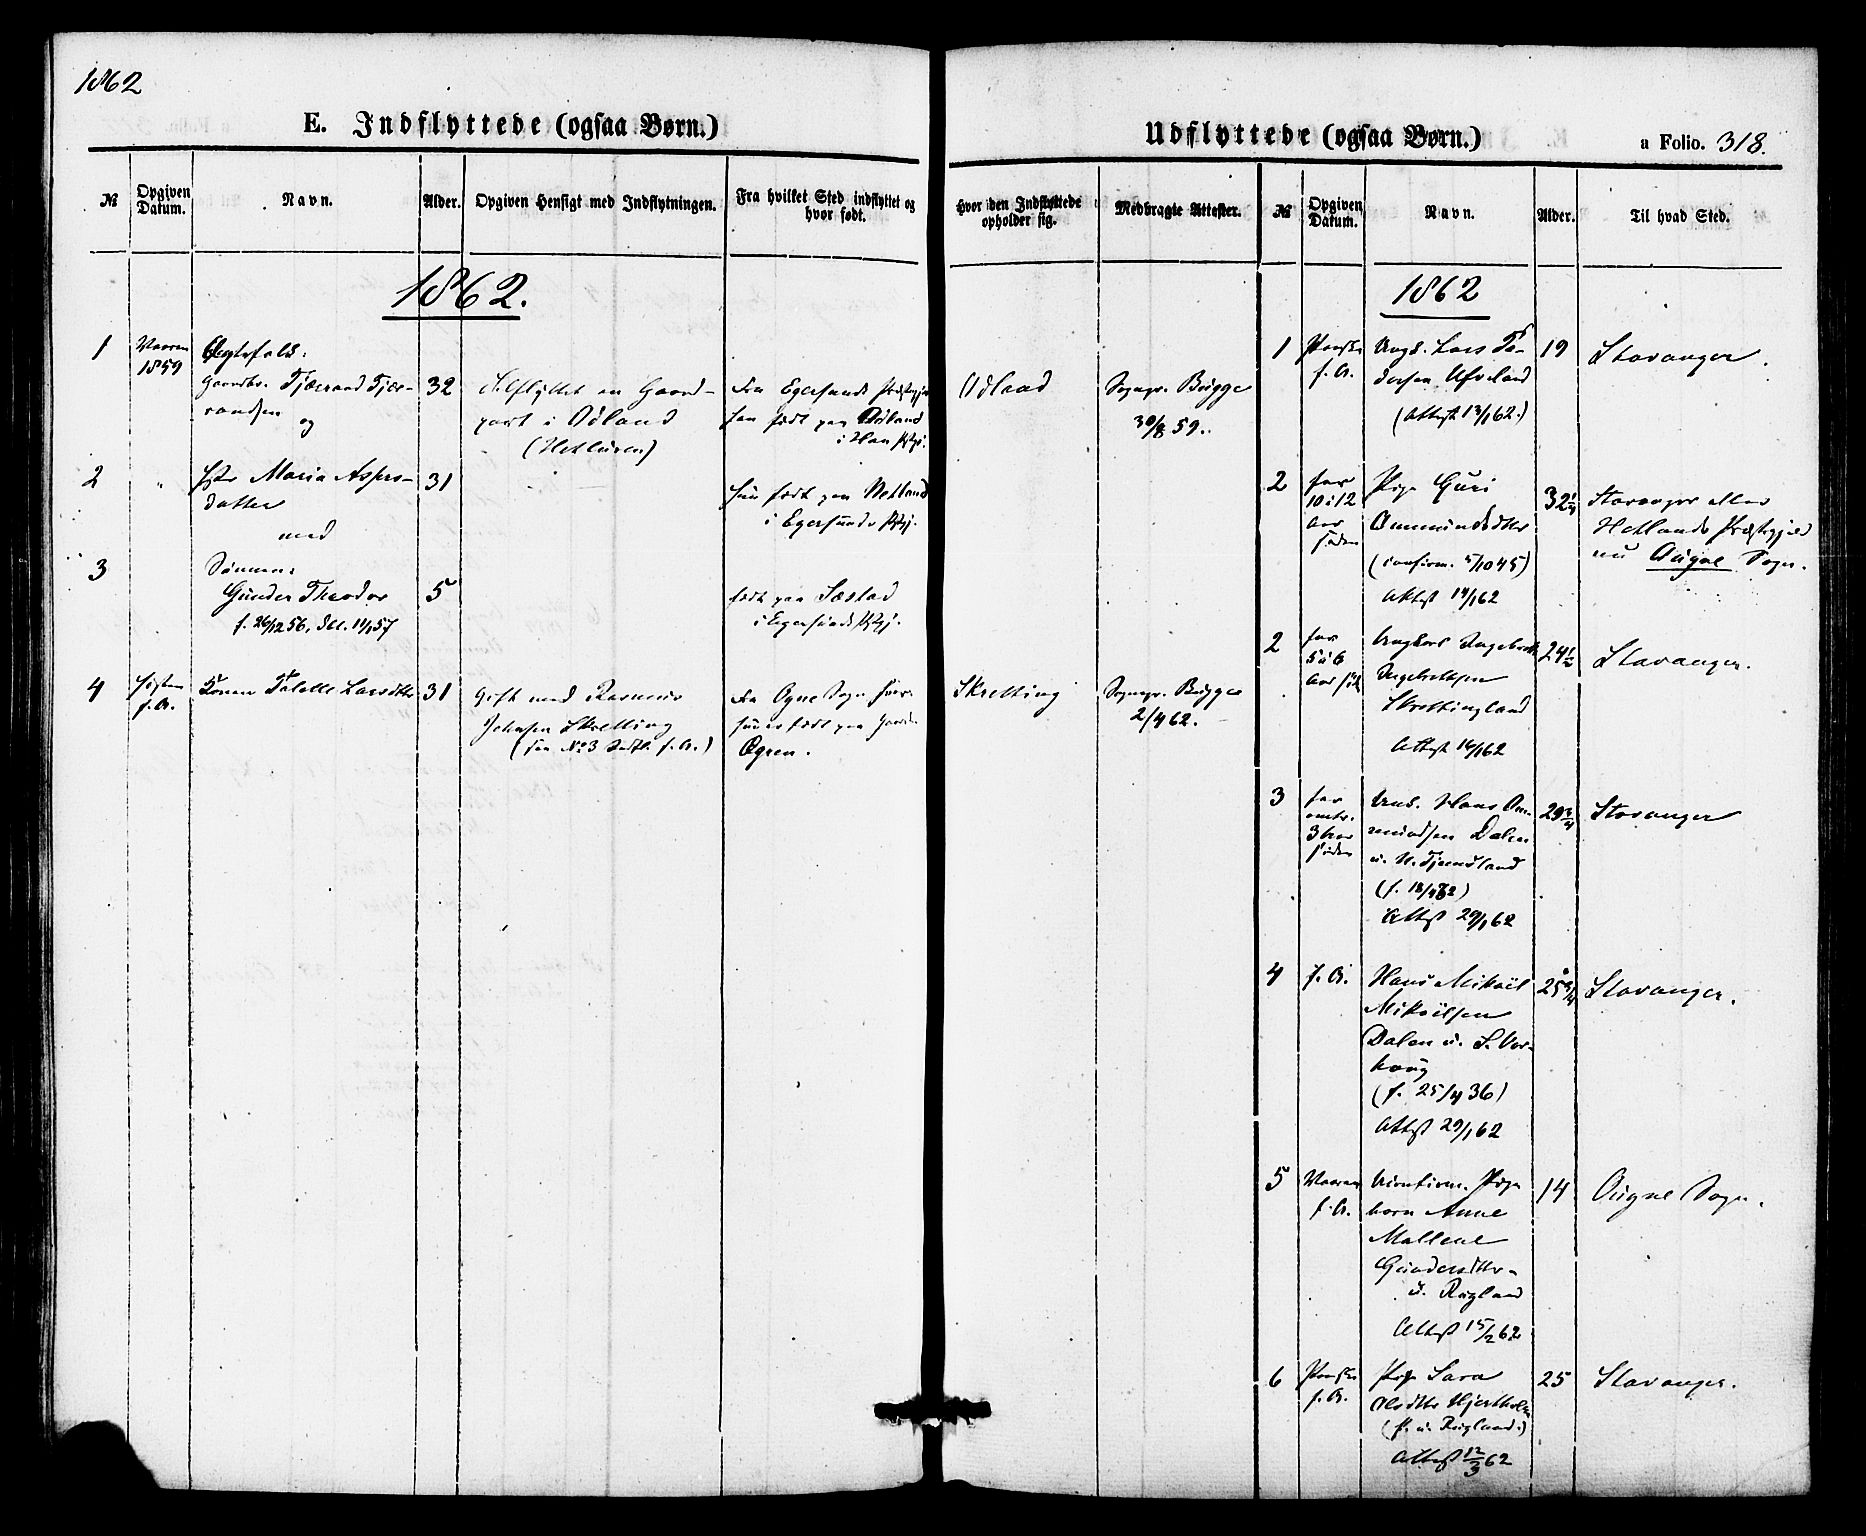 1862
E. Indflyttede (ogsaa Børn.)
№ Opgiven Datum. Navn. Alder. Opgiven Hensigt med Indflytningen. Fra hvilket Sted indflyttet og hvor født. Hvor den Indflyttede opholder sig. Medbragte Attester.
1862.
1 Vaaren 1859
Ægtefolk:
Gaardbr. Tjæraand Tjær-
randsen 32
og
Selflyttet en Gaard-
part i Ødland
(Hetluren)
fra Egersunds
han født paa Ødland
Ødland
Sognpr. Brügge
30/8 59.
2 "
Maria Aspers-
datter 31
med
hun født paa Netland
i Egersunds
3
Sønnen:
Gunder Theodor 5
f. 26/12 56, 11/1 57
født paa Sæstad
i Egersunds
4
f. A.
Konen Talette Larsdtr 31
Gift med Rasmus
Johnsen Skretting
(see No 3 f. A.)
fra Ogne Sogn
født paa
Ogren.
Skretting
Sognpr. Brügge
2/4 62.
Udflyttede (ogsaa Børn.)
a Folio. 318.
№ Opgiven Datum. Navn. Alder. Til hvad Sted.
1862
1 Paaske f. A.
Ungk. Lars Pe-
dersen Ueland
(Attest 13/1 62.)
19 Stavanger.
2 før 10 i 12 Aar siden
Pige Guri
Ommundsdtr
(confirm. 5/10 45)
Attest 14/1 62
32 1/4
Stavanger eller
Hetlands Præstegjeld
nu Augne Sogn.
2 før 5 à 6 Aar sid.
Ungkarl Ingebret
Ingebretsen
Skrettingland
Attest 16/1 62
24 1/2 Stavanger.
3 før omtr. 3 Aar siden
Ungk. Hans Om-
mundsen Dalen
u. N. Tjemsland
Attest 29/1 62
29 3/4 Stavanger
4 f. A.
Hans Mikael
Mikaelsen
Dalen u. S. Var-
houg
(f. 25/4 36)
Attest 29/1 62
25 3/4 Stavanger.
5 Vaaren f. A.
Uconfirm. Pige
barn Anne
Mallene
Gundersdtr
u. Rugland
Attest 15/2 62
14 Augne Sogn.
6 Paaske f. A.
Pige Sara
Olsdtr Hjertholm
(f. u. Rugland.)
Attest 12/3 62
25 Stavanger.